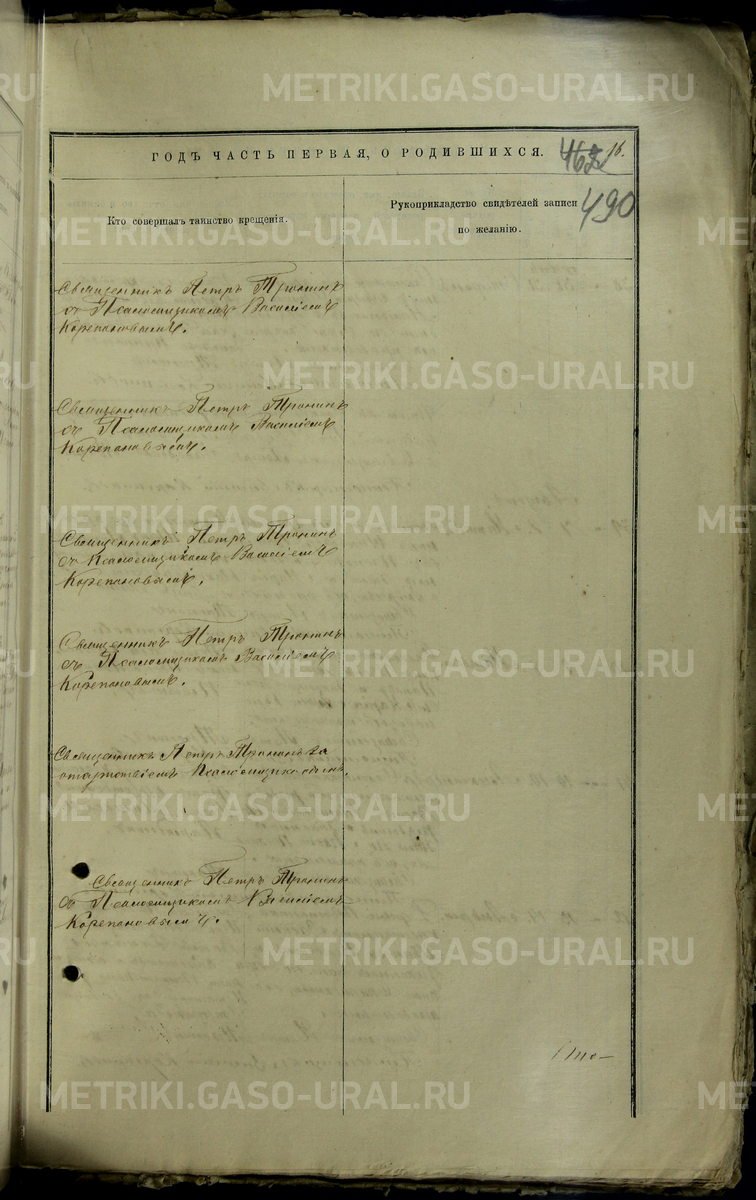 METRIKI.GASO-URAL.RU
ГОДЪ ЧАСТЬ ПЕРВАЯ, О РОДИВШИХСЯ.
16.
490
Кто совершалъ таинство крещенія.
Рукоприкладство свидѣтелей записи
по желанію.
Священникъ Петръ Тронинъ
съ Псаломщикомъ Василіемъ
Корепановымъ.
Священникъ Петръ Тронинъ
съ Псаломщикомъ Василіемъ
Корепановымъ.
Священникъ Петръ Тронинъ
съ Псаломщикомъ Василіемъ
Корепановымъ.
Священникъ Петръ Тронинъ
съ Псаломщикомъ Василіемъ
Корепановымъ.
Священникъ Петръ Тронинъ за
отсутствіемъ Псаломщика одинъ.
Священникъ Петръ Тронинъ
съ Псаломщикомъ Василіемъ
Корепановымъ.